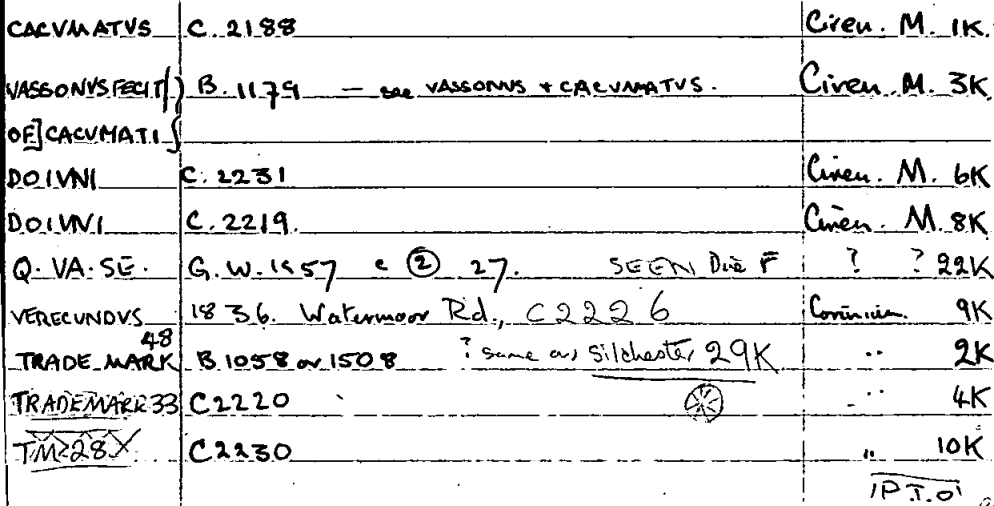 CACVMATVS C. 2188 Ciren. M. 1K.
VASSONVSFECIT B. 1179 — see VASSONVS + CACVMATVS. Ciren. M. 3K
OF] CACVMATI
DOIVNI C. 2231 Ciren. M. 6K
DOIVVI C. 2219. Ciren. M. 8K
Q. VA. SE. G. W. 1957 c ② 27. SEEN Die F ? ? 22K
VERECUNDVS 1836. Watermoor Rd., C2226 Corinium. 9K
TRADE MARK 48 B 1058 or 1508 ? same as Silchester 29K " 2K
TRADEMARK 33 C2220 " 4K
TM 28 C2230 " 10K
P.T.O